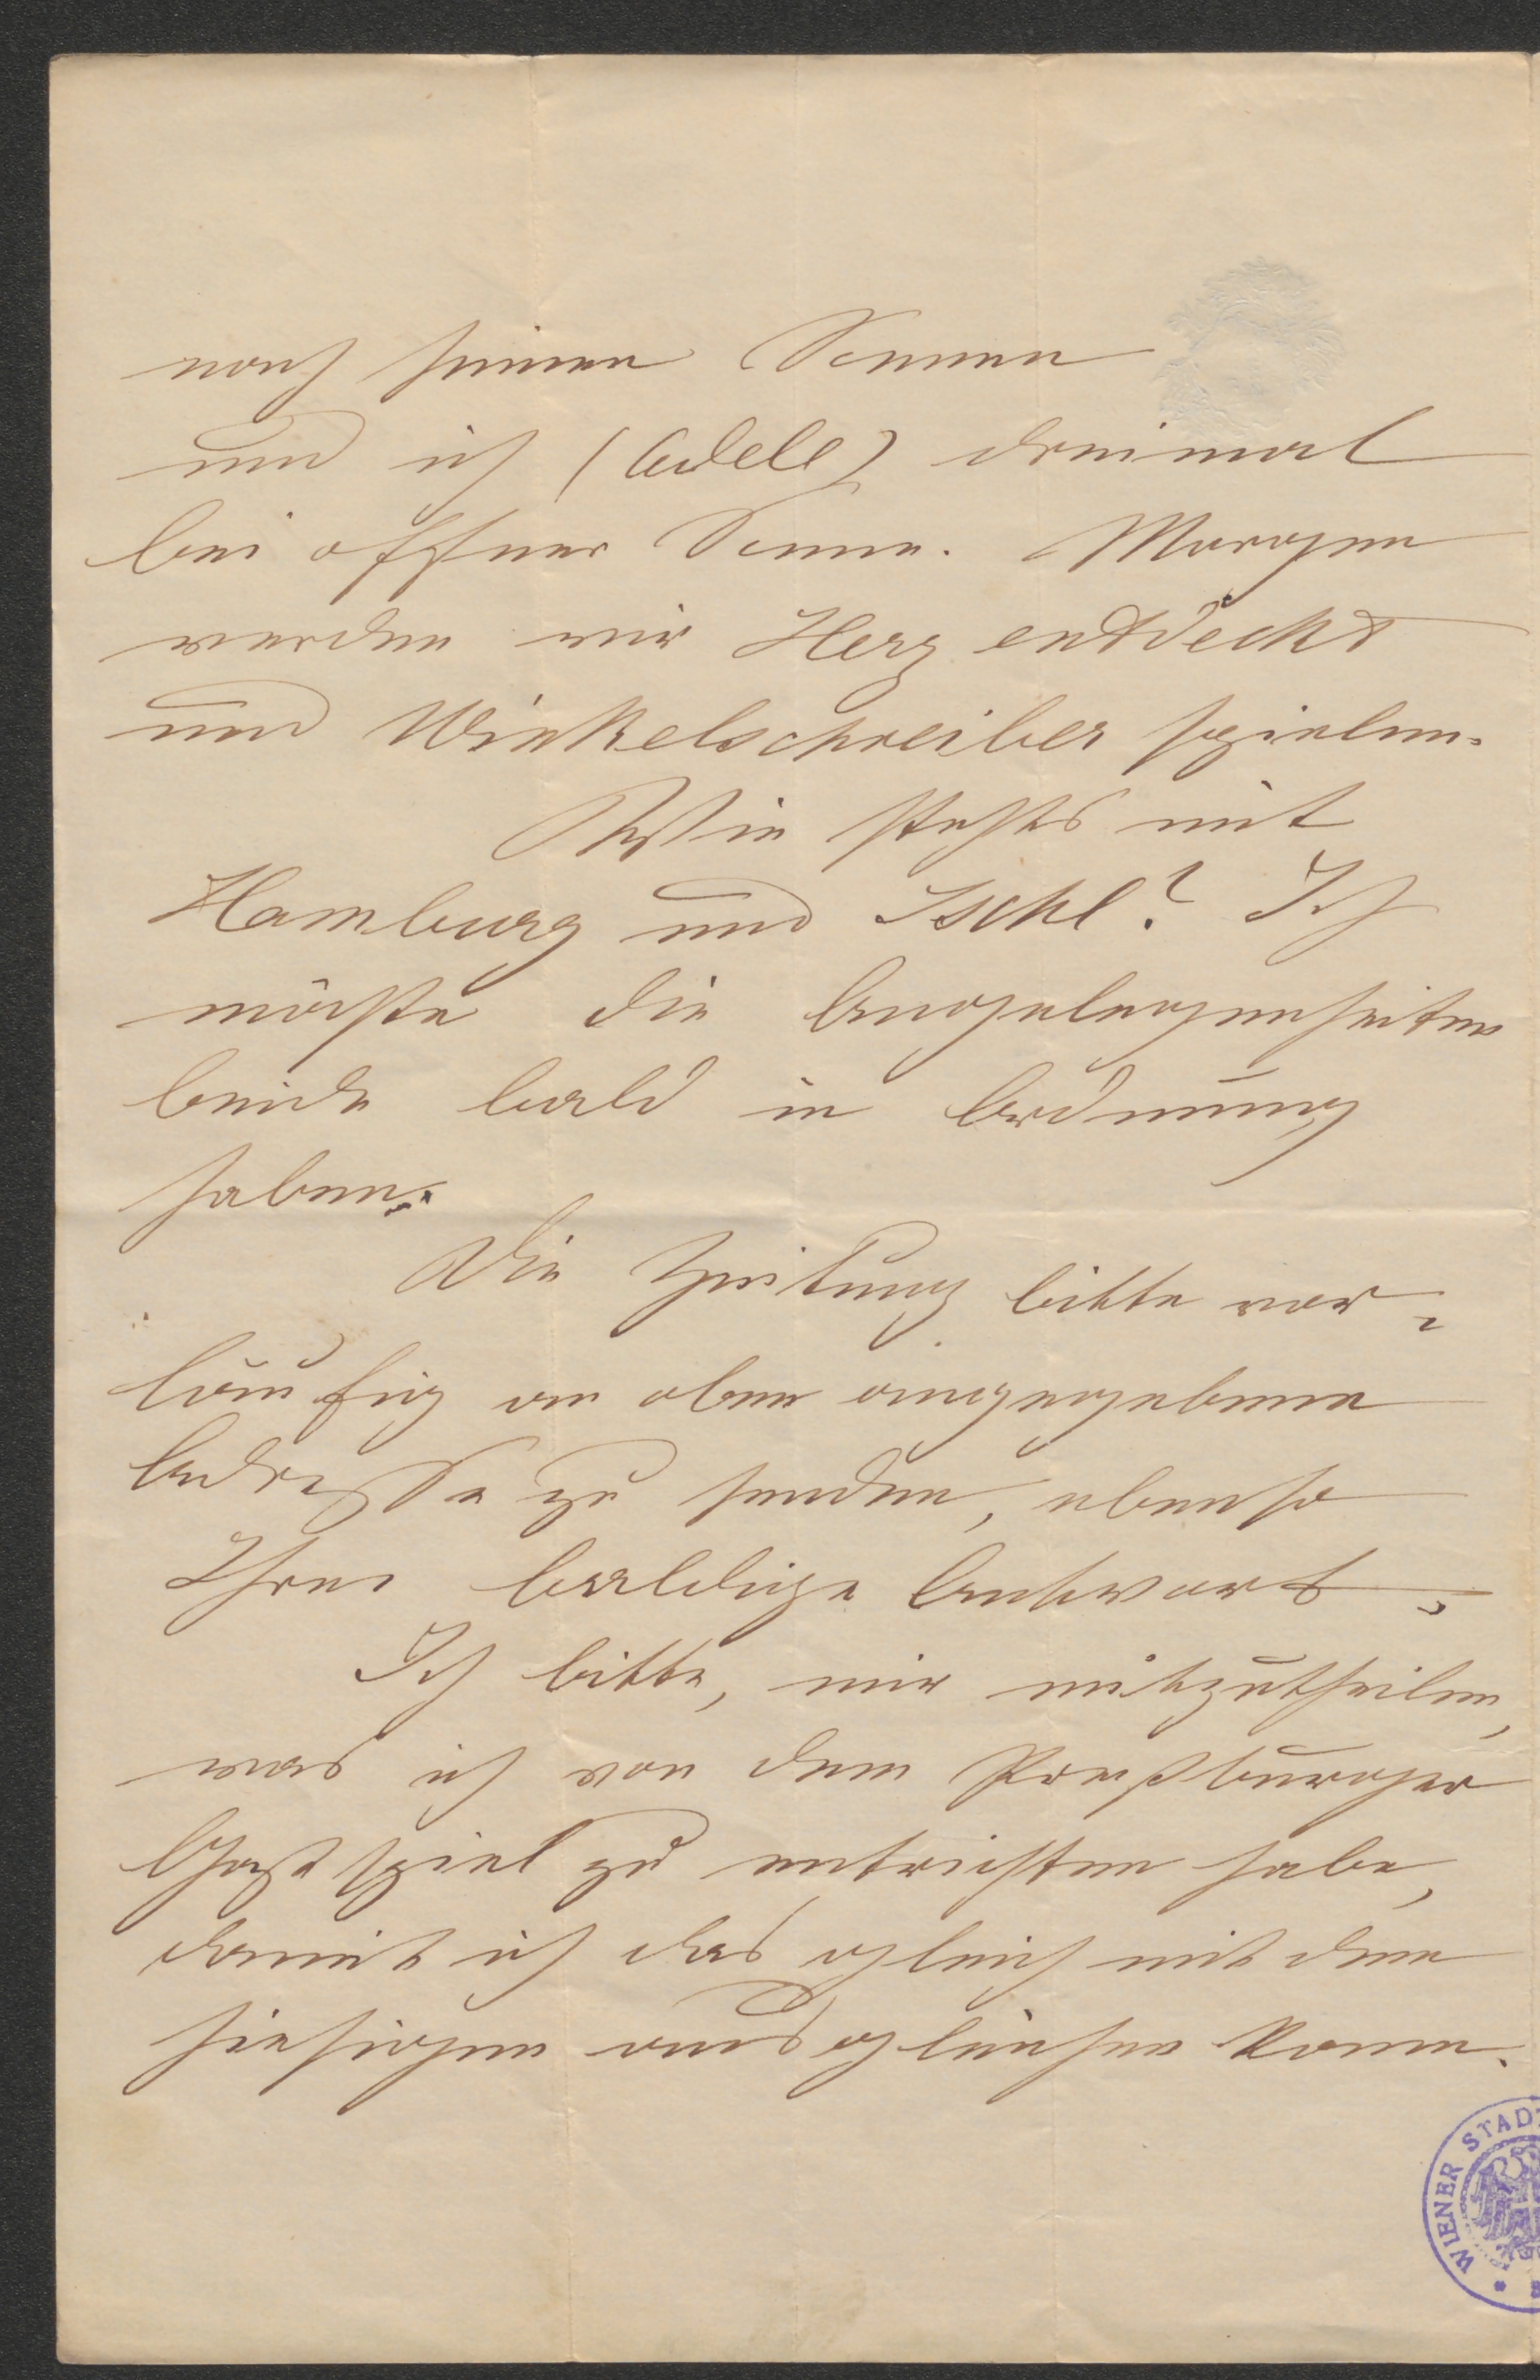 nach seinen Scenen
und ich (Adele) dreimal
bei offner Scene. Morgen
werden wir Herz entdeckt
und Winkelschreiber spielen.
Wie stehts mit
Hamburg und Ischl? Ich
möchte die Angelegenheiten
beide bald in Ordnung
haben.
Die Zeitung bitte vor-
läufig an oben angegebene
Adresse zu senden, ebenso
Ihre baldige Antwort.
Ich bitte, mir mitzutheilen,
was ich von dem Preßburger
Gastspiel zu entrichten habe,
damit ich das gleich mit dem
hiesigen ausgleichen kann.
WIENER STAD